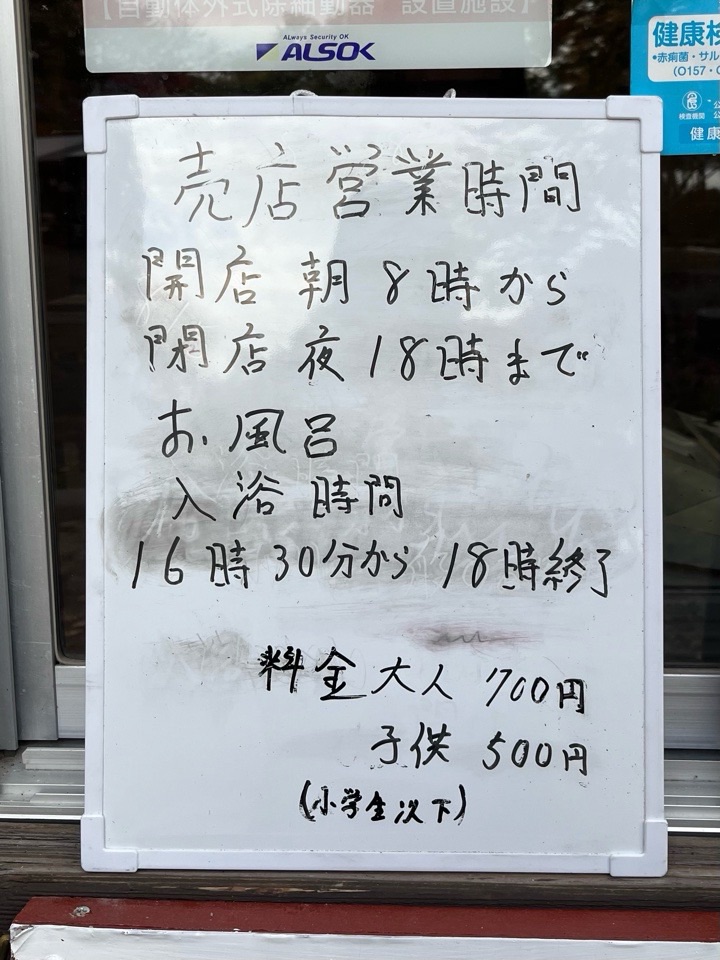 【自動体外式除細動器 設置施設】
ALways Security OK
ALSOK
健康検
•赤痢菌・サル
(O157・O
検査機関
健康
売店営業時間
開店 朝 8時から
閉店 夜 18時まで
お風呂
入浴時間
16時30分から 18時終了
料金 大人 700円
子供 500円
(小学生以下)